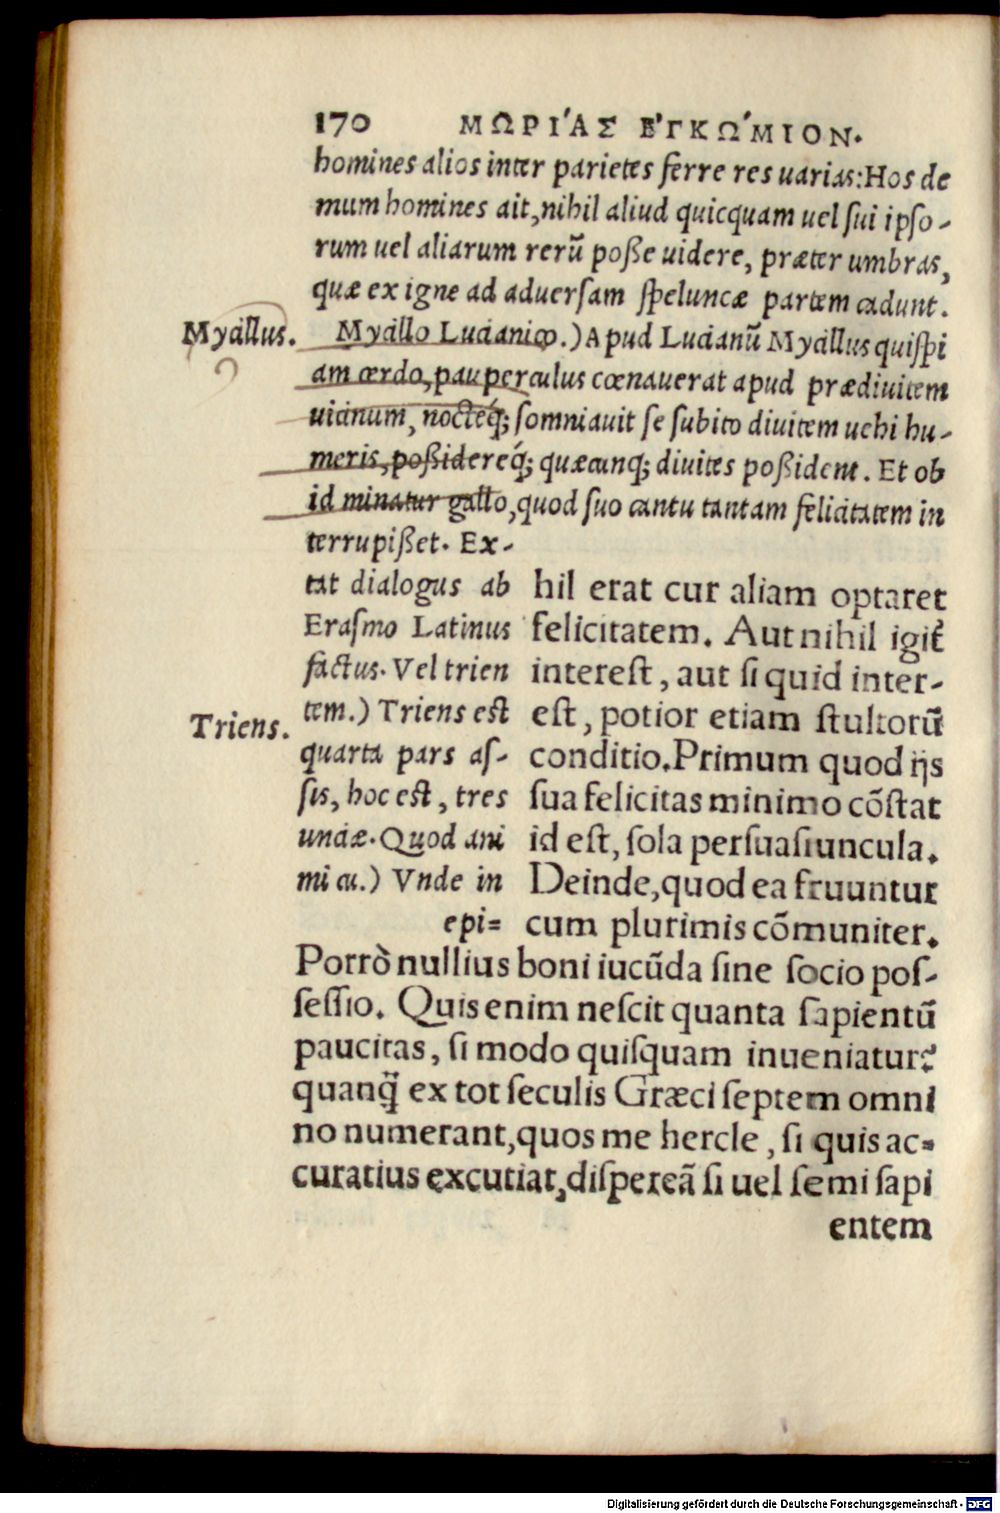 170 ΜΩΡΙ´ΑΣ ΕʼΓΚΩ´ΜΙΟΝ.
homines alios inter parietes ferre res uarias: Hos de
mum homines ait, nihil aliud quicquam uel sui ipso-
rum uel aliarum rerũ poſſe uidere, præter umbras,
quæ ex igne ad aduerſam ſpeluncæ partem cadunt.
Mycillus.
Mycillo Lucianico.) Apud Lucianũ Mycillus quiſpi
am cerdo, pauperculus cœnauerat apud prædiuitem
uicinum, nocteq́; ſomniauit ſe ſubito diuitem uehi hu-
meris, poßidereq́; quæcunq; diuites poßident. Et ob
id minatur gallo, quod ſuo cantu tantam felicitatem in
terrupißet. Ex-
tat dialogus ab
Eraſmo Latinus
factus. Vel trien
tem.) Triens est
Triens.
quarta pars aſ-
ſis, hoc est, tres
unciæ. Quod ani
mi cu.) Vnde in
epi=
hil erat cur aliam optaret
felicitatem. Aut nihil igit̃
intereſt, aut ſi quid inter-
eſt, potior etiam ſtultorũ
conditio. Primum quod ijs
ſua felicitas minimo cõſtat
id eſt, ſola perſuaſiuncula.
Deinde, quod ea fruuntur
cum plurimis cõmuniter.
Porrò nullius boni iucũda ſine ſocio poſ-
ſeſſio. Quis enim neſcit quanta ſapientũ
paucitas, ſi modo quiſquam inueniatur?
quanq̃ ex tot ſeculis Græci ſeptem omni
no numerant, quos me hercle, ſi quis ac=
curatius excutiat, diſpereã ſi uel ſemi ſapi
entem
Digitalisierung gefördert durch die Deutsche Forschungsgemeinschaft - DFG